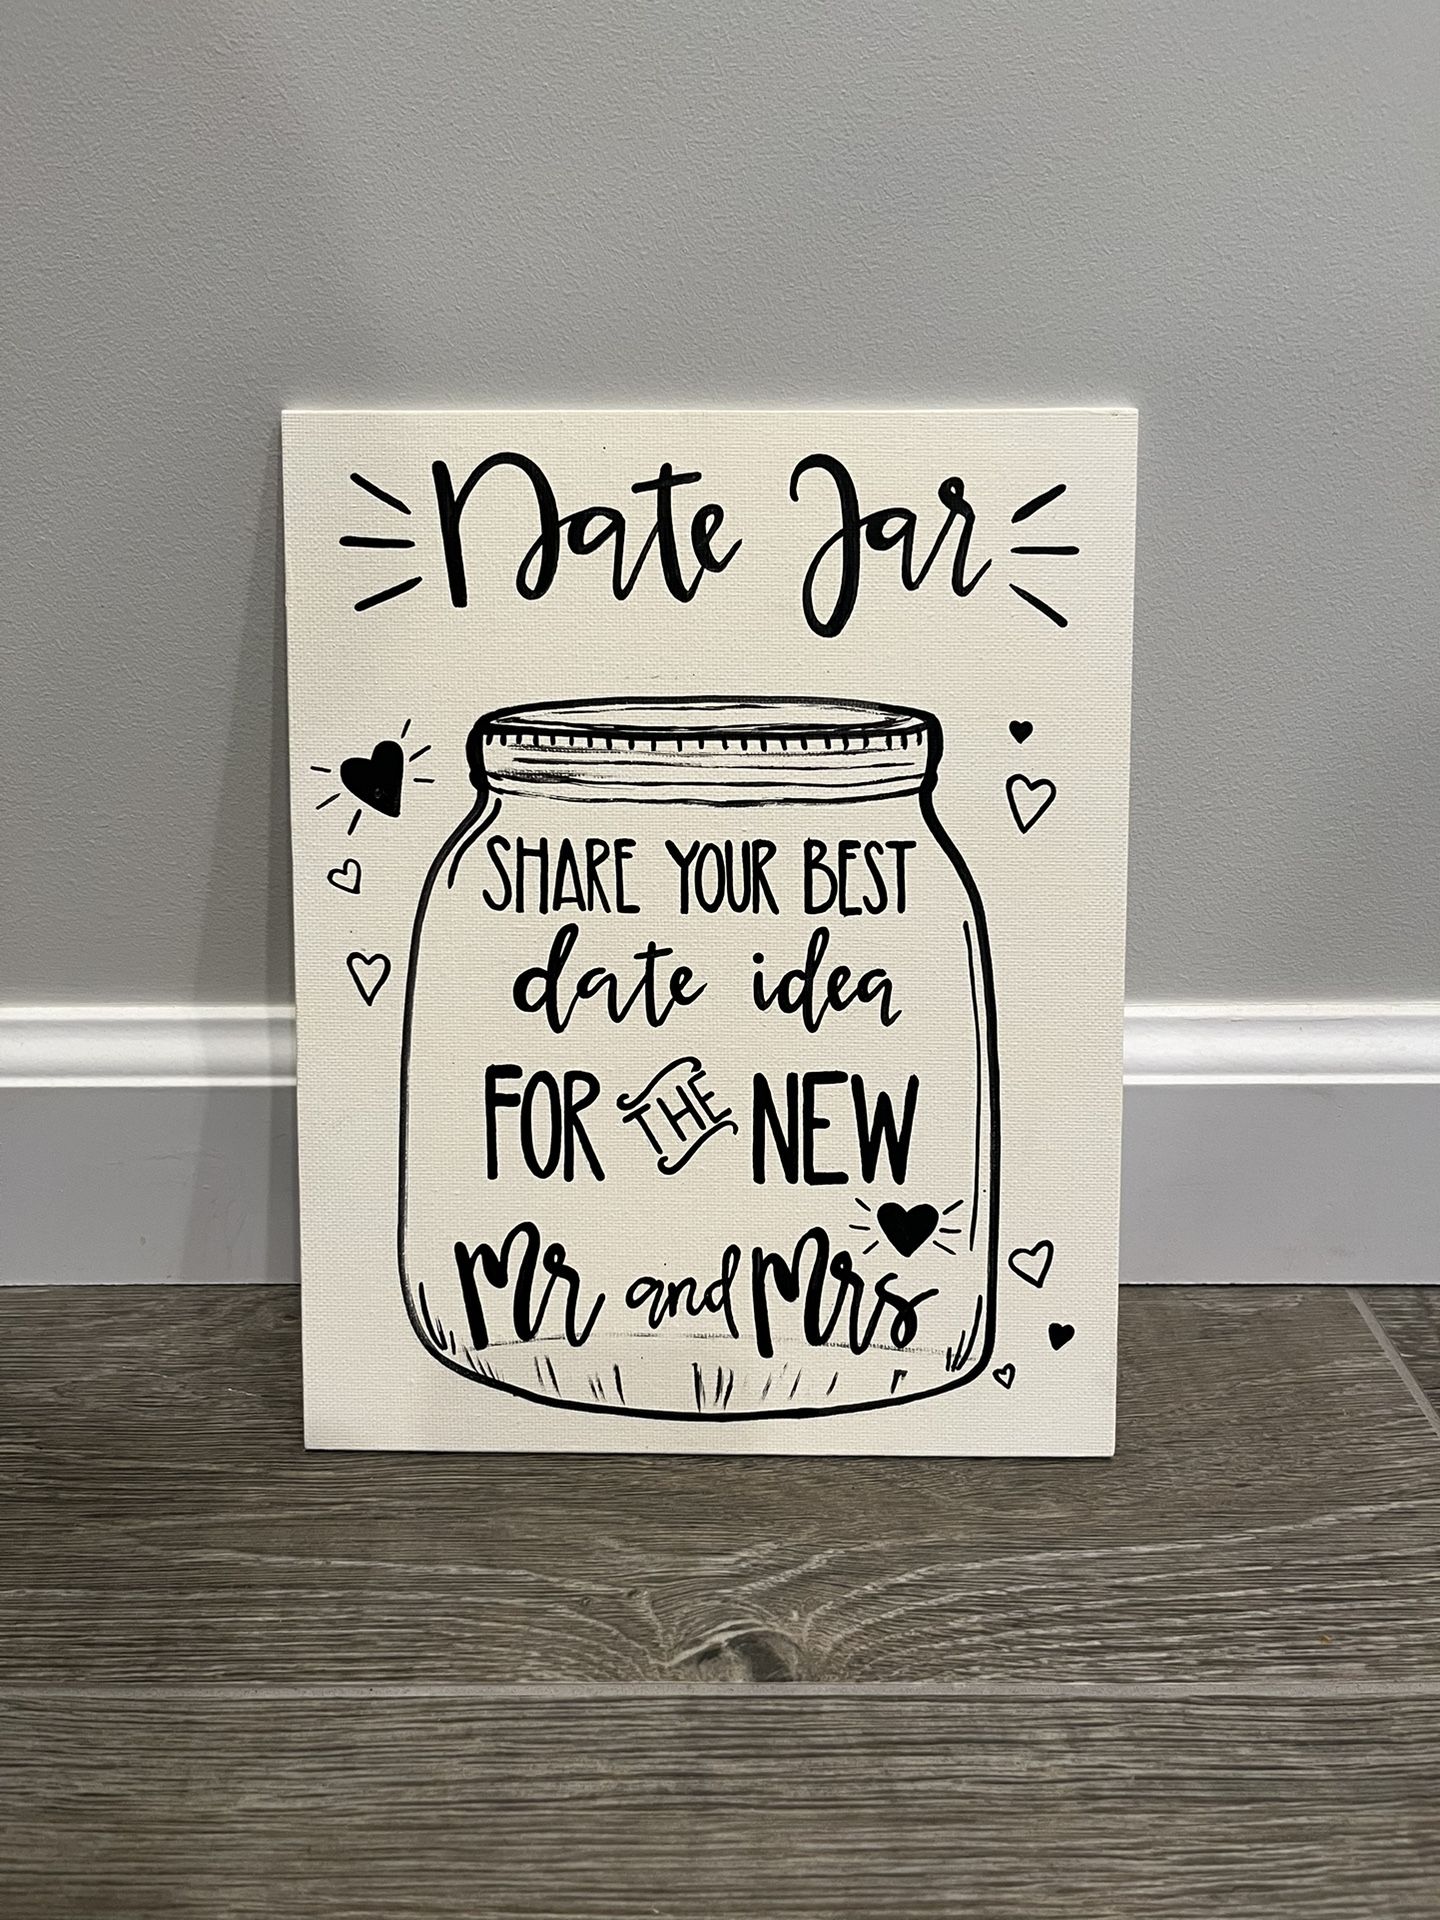 Date Jar
SHARE YOUR BEST
date idea
FOR THE NEW
Mr and Mrs